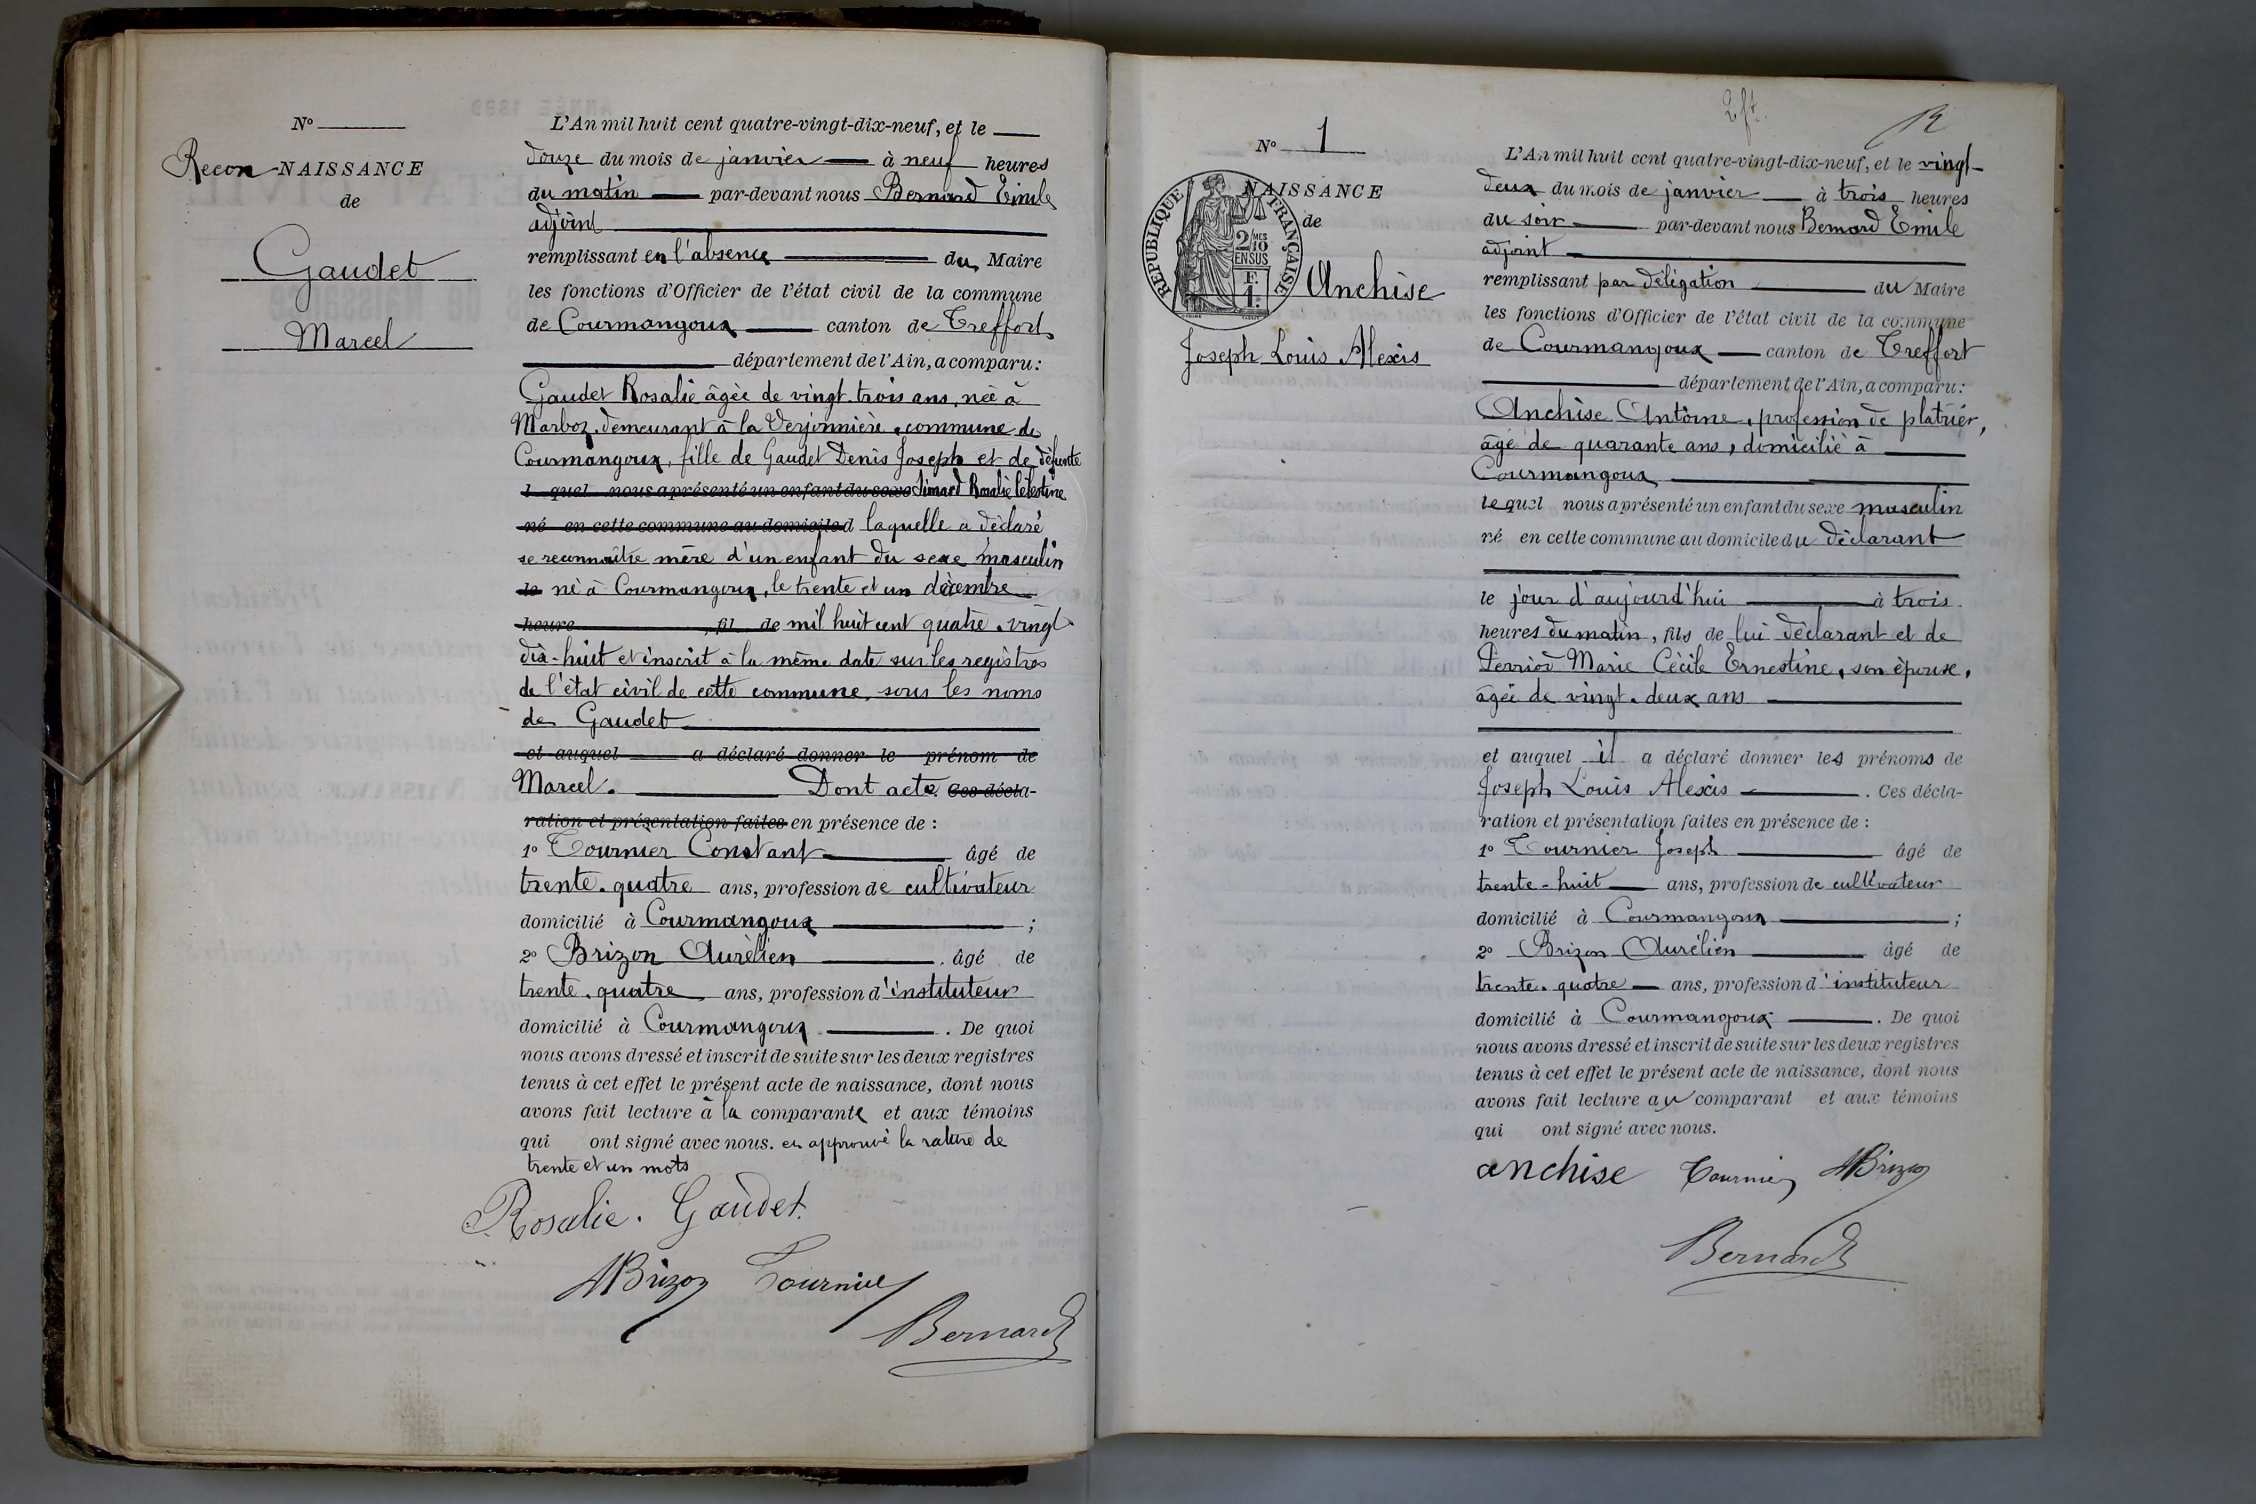 N°
Recon-NAISSANCE
de
Gaudet
Marcel
L'An mil huit cent quatre-vingt-dix-neuf, et le
douze du mois de janvier à neuf heures
du matin par-devant nous Bernard Emile
adjoint
remplissant en l'absence du Maire
les fonctions d'Officier de l'état civil de la commune
de Courmangoux canton de Treffort
département de l'Ain, a comparu :
Gaudet Rosalie âgée de vingt-trois ans, née à
Marboz, demeurant à la Verjonnière, commune de
Courmangoux, fille de Gaudet Denis Joseph et de défunte
l quel nous a présenté un enfant du sexe Simard Rosalie Célestine
né en cette commune au domicile d laquelle a déclaré
se reconnaître mère d'un enfant du sexe masculin
le né à Courmangoux, le trente et un décembre
heure , fil de mil huit cent quatre-vingt
dix-huit et inscrit à la même date sur les registres
de l'état civil de cette commune, sous les noms
de Gaudet
et auquel a déclaré donner le prénom de
Marcel. Dont acte. Ces décla-
ration et présentation faites en présence de :
1° Tournier Constant âgé de
trente-quatre ans, profession de cultivateur
domicilié à Courmangoux ;
2° Brizon Aurélien . âgé de
trente-quatre ans, profession d'instituteur
domicilié à Courmangoux . De quoi
nous avons dressé et inscrit de suite sur les deux registres
tenus à cet effet le présent acte de naissance, dont nous
avons fait lecture à la comparante et aux témoins
qui ont signé avec nous. en approuvé la rature de
trente et un mots
Rosalie. Gaudet.
ABrizon Tournier
Bernard
2 ft.
N° 1
NAISSANCE
de
RÉPUBLIQUE FRANÇAISE
2/10 MES
EN SUS
F.
1.
Anchise
Joseph Louis Alexis
L'An mil huit cent quatre-vingt-dix-neuf, et le vingt-
deux du mois de janvier à trois heures
du soir par-devant nous Bernard Emile
adjoint
remplissant par délégation du Maire
les fonctions d'Officier de l'état civil de la commune
de Courmangoux canton de Treffort
département de l'Ain, a comparu :
Anchise Antoine, profession de platrier,
âgé de quarante ans, domicilié à
Courmangoux
lequel nous a présenté un enfant du sexe masculin
né en cette commune au domicile du déclarant
le jour d'aujourd'hui à trois
heures du matin, fils de lui déclarant et de
Perriod Marie Cécile Ernestine, son épouse,
âgée de vingt-deux ans
et auquel il a déclaré donner les prénoms de
Joseph Louis Alexis . Ces décla-
ration et présentation faites en présence de :
1° Tournier Joseph âgé de
trente-huit ans, profession de cultivateur
domicilié à Courmangoux ;
2° Brizon Aurélien âgé de
trente-quatre ans, profession d'instituteur
domicilié à Courmangoux . De quoi
nous avons dressé et inscrit de suite sur les deux registres
tenus à cet effet le présent acte de naissance, dont nous
avons fait lecture au comparant et aux témoins
qui ont signé avec nous.
anchise Tournier ABrizon
Bernard